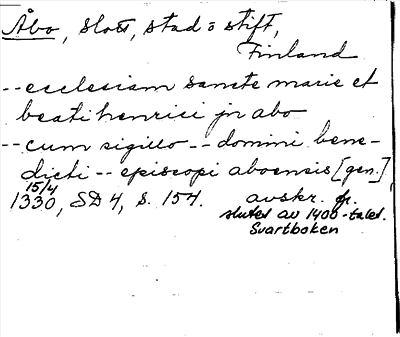 Åbo, slott, stad o stift,
Finland
-- ecclesiam sancte marie et
beati henrici jn abo
-- cum sigillo -- domini bene-
dicti -- episcopi aboensis [gen.]
15/4
1330, SD 4, s. 154. avskr. fr.
slutet av 1400-talet.
Svartboken